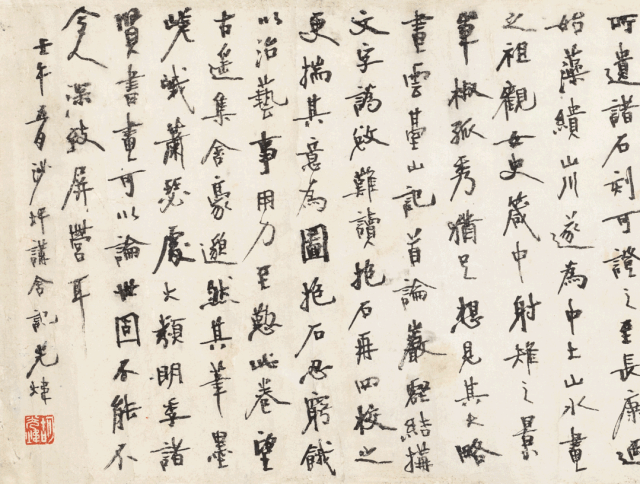 所遺諸石刻可證之至長康迺
始藻繢山川遂為中土山水畫
之祖觀女史箴中射雉之景
單椒孤秀猶足想見其大略
畫雲臺山記首論巖壑結構
文字譌敓難讀抱石再四校之
更揣其意為圖抱石忍窮餓
以治藝事用力至懃此卷望
古遙集含豪邈然其筆墨
峣峨蕭瑟處大類明季諸
賢書畫可以論世固不能不
令人深致屏營耳
壬午五月沙坪講舍記光煒